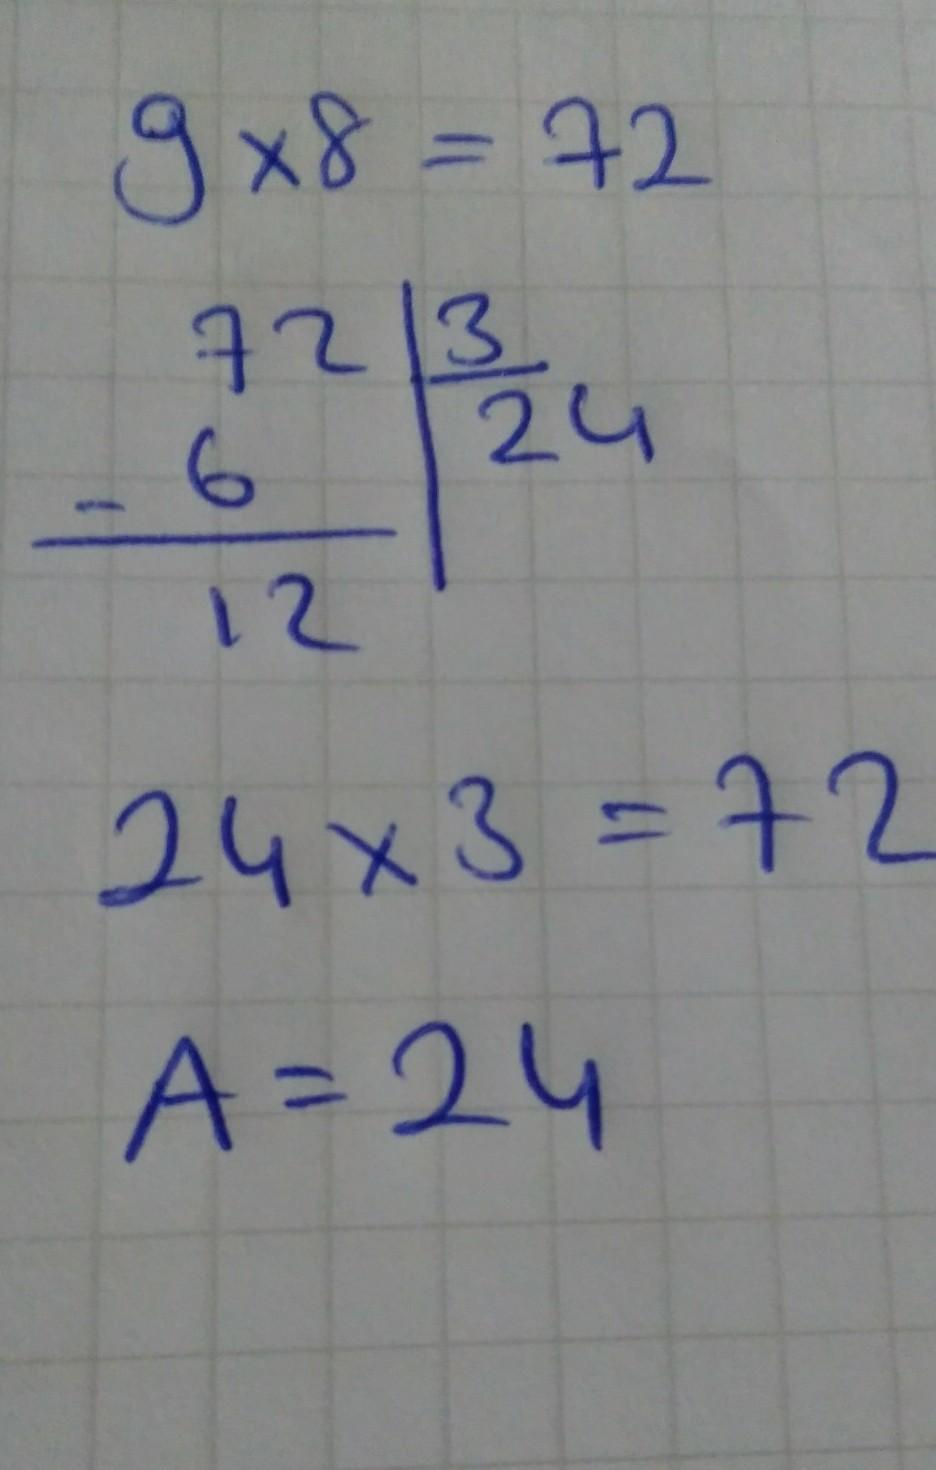 9x8 = 72
72 | 3
- 6 | 24
12
24 x 3 = 72
A = 24